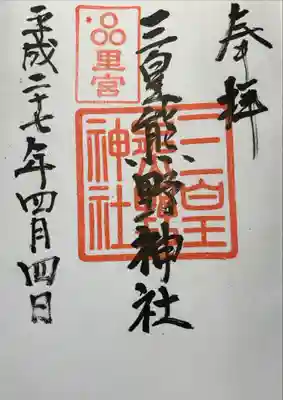 奉拝
三皇熊野神社
里宮
三皇熊野神社
平成二十七年四月四日